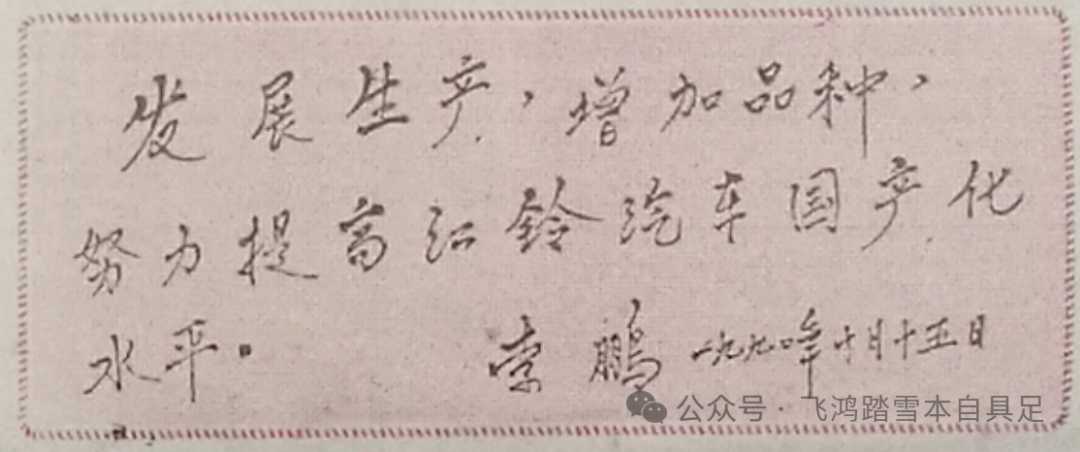 发展生产，增加品种，
努力提高江铃汽车国产化
水平。
索鹏 一九九〇年十月十五日
公众号·飞鸿踏雪本自具足